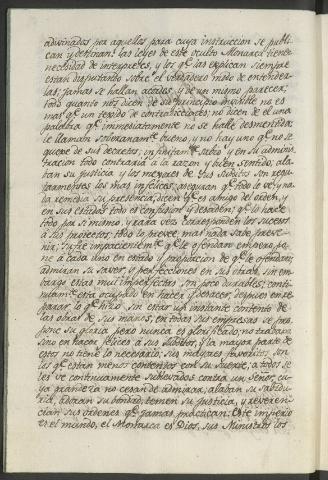 adivinados por aquellos para cuya instruccion se publi-
can y destinan. las leyes de este oculto Monarca tienen
necesidad de interpretes, y los q.e las explican siempre
estan disputando sobre el verdadero modo de entender-
las; jamas se hallan acordes, y de un mismo parecer;
todo quanto nos dicen de su principe invisible no es
mas q.e un texido de contradicciones; no dicen de el una
palabra q.e immediatamente no se halle desmentida;
le llaman soberanam.te bueno, y no hay uno q.e no se
quexe de sus decretos, infinitam.te sabio y en su adminis-
tracion todo contraria à la razon y buen sentido; ala-
ban su justicia y los mejores de sus subditos son regu-
larmentes los mas infelices; aseguran q.e todo lo ve, y na-
da remedia su presencia; dicen q.e es amigo del orden, y
en sus estados todo es confusion y desorden; q.e lo hace
todo por si mismo, y rara vez corresponden los sucesos
à sus proyectos; todo lo preve, mas nada sabe preve-
nir; sufre impacientem.te q.e le ofendan empero, po-
ne à cada uno en estado y proporcion de q.e le ofendan;
admiran su saver, y perfecciones en sus obras, sin em-
bargo estas mui imperfectas son poco durables; conti-
nuam.te esta ocupado en hacer y deshacer, despues en re-
parar lo q.e hizo, sin estar un instante contento de
las obras de sus manos, en todas sus empresas se pro-
pone su gloria pero nunca es glorificado; no trabaja
sino en hacer felices à sus subditos, y la mayor parte de
estos no tiene lo necesario; sus mayores favoritos son
los q.e estan menos contentos con su suerte, à todos se
les ve continuamente sublevados contra un Señor, cu-
ya grandeza no cesan de admirar, alaban su sabidu-
ria, adoran su bondad, temen su justicia, y reveren-
cian sus ordenes q.e jamas practican: Este imperio
es el mundo, el Monarca es Dios, sus Ministros los